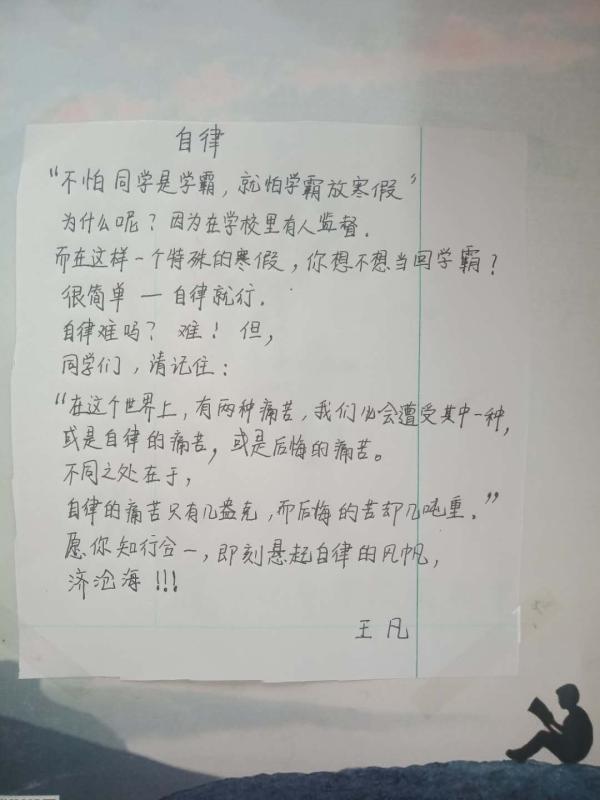 自律
“不怕同学是学霸，就怕学霸放寒假”
为什么呢？因为在学校里有人监督.
而在这样一个特殊的寒假，你想不想当回学霸？
很简单 — 自律就行.
自律难吗？难！但，
同学们，请记住：
“在这个世界上，有两种痛苦，我们必会遭受其中一种，
或是自律的痛苦，或是后悔的痛苦。
不同之处在于，
自律的痛苦只有几盎克，而后悔的苦却几吨重.”
愿你知行合一，即刻悬起自律的风帆，
济沧海!!!
王凡